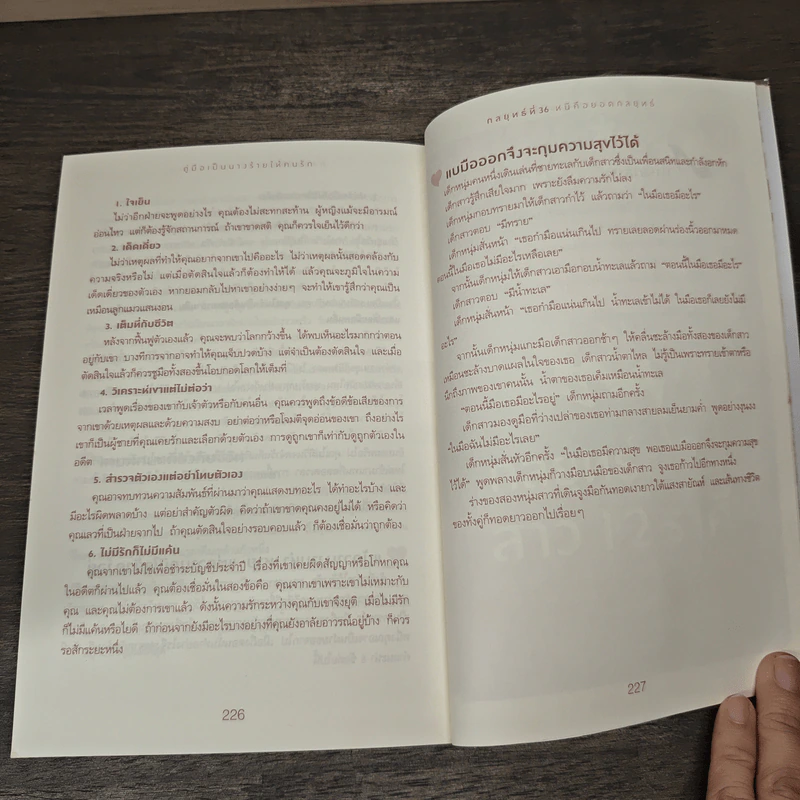 คู่มือเป็นนางร้ายให้คนรัก
1. ใจเย็น
ไม่ว่าอีกฝ่ายจะพูดอย่างไร คุณต้องไม่สะทกสะท้าน ผู้หญิงแม้จะมีอารมณ์
อ่อนไหว แต่ก็ต้องรู้จักสถานการณ์ ถ้าเขาขาดสติ คุณก็ควรใจเย็นไว้ดีกว่า
2. เด็ดเดี่ยว
ไม่ว่าเหตุผลที่ทำให้คุณอยากจากเขาไปคืออะไร ไม่ว่าเหตุผลนั้นสอดคล้องกับ
ความจริงหรือไม่ แต่เมื่อตัดสินใจแล้วก็ต้องทำให้ได้ แล้วคุณจะภูมิใจในความ
เด็ดเดี่ยวของตัวเอง หากยอมกลับไปหาเขาอย่างง่ายๆ จะทำให้เขารู้สึกว่าคุณเป็น
เหมือนลูกแมวแสนงอน
3. เต็มที่กับชีวิต
หลังจากฟื้นฟูตัวเองแล้ว คุณจะพบว่าโลกกว้างขึ้น ได้พบเห็นอะไรมากกว่าตอน
อยู่กับเขา บางทีการจากอาจทำให้คุณเจ็บปวดบ้าง แต่จำเป็นต้องตัดสินใจ และเมื่อ
ตัดสินใจแล้วก็ควรชูมือทั้งสองขึ้นโอบกอดโลกให้เต็มที่
4. วิเคราะห์เขาแต่ไม่ต่อว่า
เวลาพูดเรื่องของเขากับเจ้าตัวหรือกับคนอื่น คุณควรพูดถึงข้อดีข้อเสียของการ
จากเขาด้วยเหตุผลและด้วยความสงบ อย่าต่อว่าหรือโจมตีจุดอ่อนของเขา ถึงอย่างไร
เขาก็เป็นผู้ชายที่คุณเคยรักและเลือกด้วยตัวเอง การดูถูกเขาก็เท่ากับดูถูกตัวเองใน
อดีต
5. สำรวจตัวเองแต่อย่าโทษตัวเอง
คุณอาจทบทวนความสัมพันธ์ที่ผ่านมาว่าคุณแสดงบทอะไร ได้ทำอะไรบ้าง และ
มีอะไรผิดพลาดบ้าง แต่อย่าสำคัญตัวผิด คิดว่าถ้าเขาขาดคุณคงอยู่ไม่ได้ หรือคิดว่า
คุณเลวที่เป็นฝ่ายจากไป ถ้าคุณตัดสินใจอย่างรอบคอบแล้ว ก็ต้องเชื่อมั่นว่าถูกต้อง
6. ไม่มีรักก็ไม่มีแค้น
คุณจากเขาไม่ใช่เพื่อชำระบัญชีประจำปี เรื่องที่เขาเคยผิดสัญญาหรือโกหกคุณ
ในอดีตก็ผ่านไปแล้ว คุณต้องเชื่อมั่นในสองข้อคือ คุณจากเขาเพราะเขาไม่เหมาะกับ
คุณ และคุณไม่ต้องการเขาแล้ว ดังนั้นความรักระหว่างคุณกับเขาจึงยุติ เมื่อไม่มีรัก
ก็ไม่มีแค้นหรือไยดี ถ้าก่อนจากยังมีอะไรบางอย่างที่คุณยังอาลัยอาวรณ์อยู่บ้าง ก็ควร
รอสักระยะหนึ่ง
226
กลยุทธ์ที่ 36 หนีคือยอดกลยุทธ์
แบมือออกจึงจะกุมความสุขไว้ได้
เด็กหนุ่มคนหนึ่งเดินเล่นที่ชายทะเลกับเด็กสาวซึ่งเป็นเพื่อนสนิทและกำลังอกหัก
เด็กสาวรู้สึกเสียใจมาก เพราะยังลืมความรักไม่ลง
เด็กหนุ่มกอบทรายมาให้เด็กสาวกำไว้ แล้วถามว่า “ในมือเธอมีอะไร”
เด็กสาวตอบ “มีทราย”
เด็กหนุ่มสั่นหน้า “เธอกำมือแน่นเกินไป ทรายเลยลอดผ่านร่องนิ้วออกมาหมด
ตอนนี้ในมือเธอไม่มีอะไรเหลือเลย”
จากนั้นเด็กหนุ่มให้เด็กสาวเอามือกอบน้ำทะเลแล้วถาม “ตอนนี้ในมือเธอมีอะไร”
เด็กสาวตอบ “มีน้ำทะเล”
เด็กหนุ่มสั่นหน้า “เธอกำมือแน่นเกินไป น้ำทะเลเข้าไม่ได้ ในมือเธอก็เลยยังไม่มี
อะไร”
จากนั้นเด็กหนุ่มแกะมือเด็กสาวออกช้าๆ ให้คลื่นชะล้างมือทั้งสองของเด็กสาว
เหมือนชะล้างบาดแผลในใจของเธอ เด็กสาวน้ำตาไหล ไม่รู้เป็นเพราะทรายเข้าตาหรือ
นึกถึงภาพของเขาคนนั้น น้ำตาของเธอเค็มเหมือนน้ำทะเล
“ตอนนี้มือเธอมีอะไรอยู่” เด็กหนุ่มถามอีกครั้ง
เด็กสาวมองดูมือที่ว่างเปล่าของเธอท่ามกลางสายลมเย็นยามค่ำ พูดอย่างงุนงง
“ในมือฉันไม่มีอะไรเลย”
เด็กหนุ่มสั่นหัวอีกครั้ง “ในมือเธอมีความสุข พอเธอแบมือออกจึงจะกุมความสุข
ไว้ได้” พูดพลางเด็กหนุ่มก็วางมือบนมือของเด็กสาว จูงเธอก้าวไปอีกทางหนึ่ง
ร่างของสองหนุ่มสาวที่เดินจูงมือกันทอดเงายาวใต้แสงสายัณห์ และเส้นทางชีวิต
ของทั้งคู่ก็ทอดยาวออกไปเรื่อยๆ
227